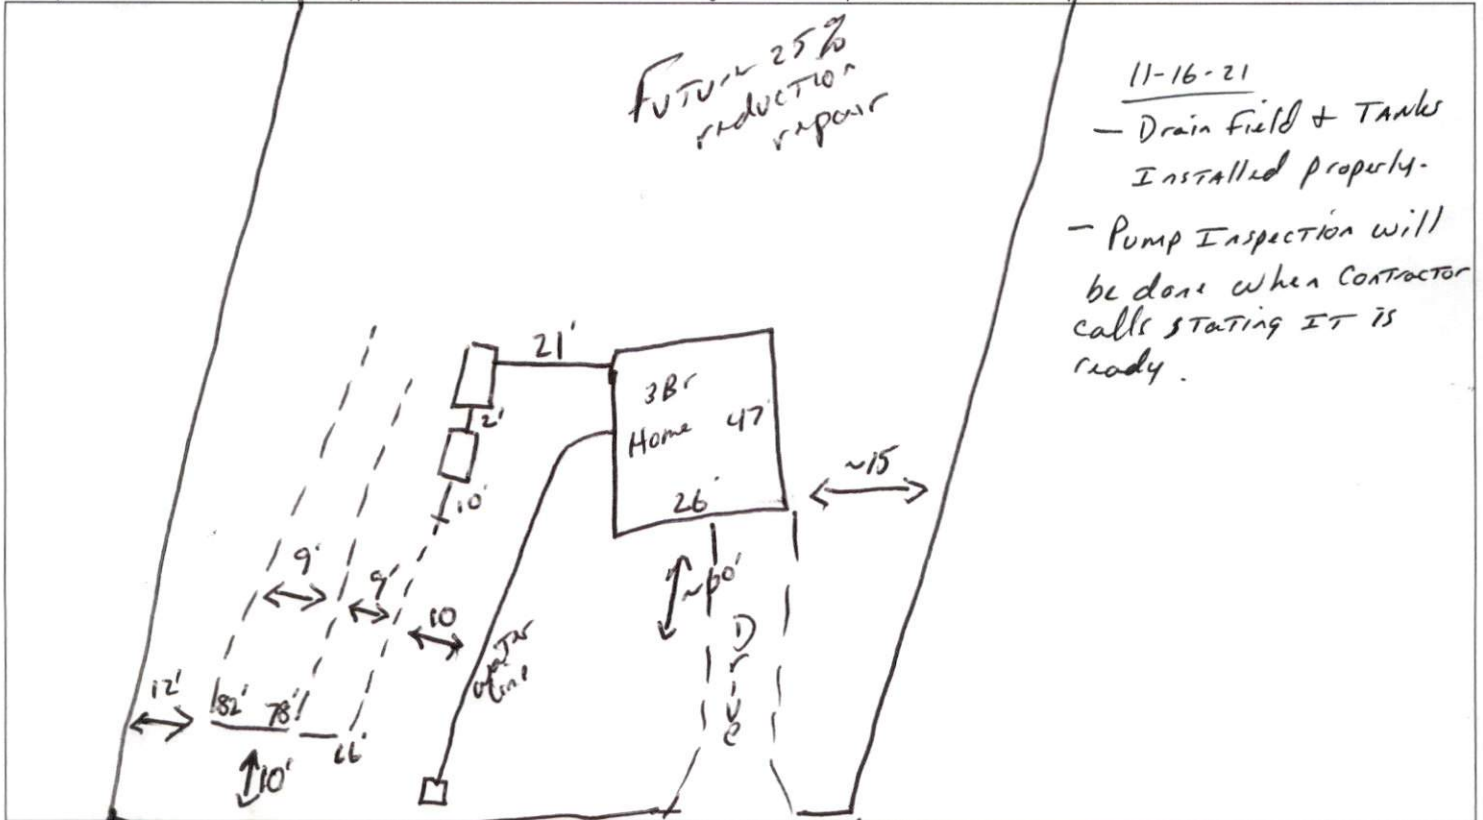 Future 25%
reduction
repair
11-16-21
- Drain Field & TANKs
Installed properly.
- Pump Inspection will
be done when Contractor
calls stating IT is
ready.
21'
3Br
Home
47'
2'
26'
~15
10'
9'
9'
10
Water
Line
Drive
12'
82'
78'
66'
10'